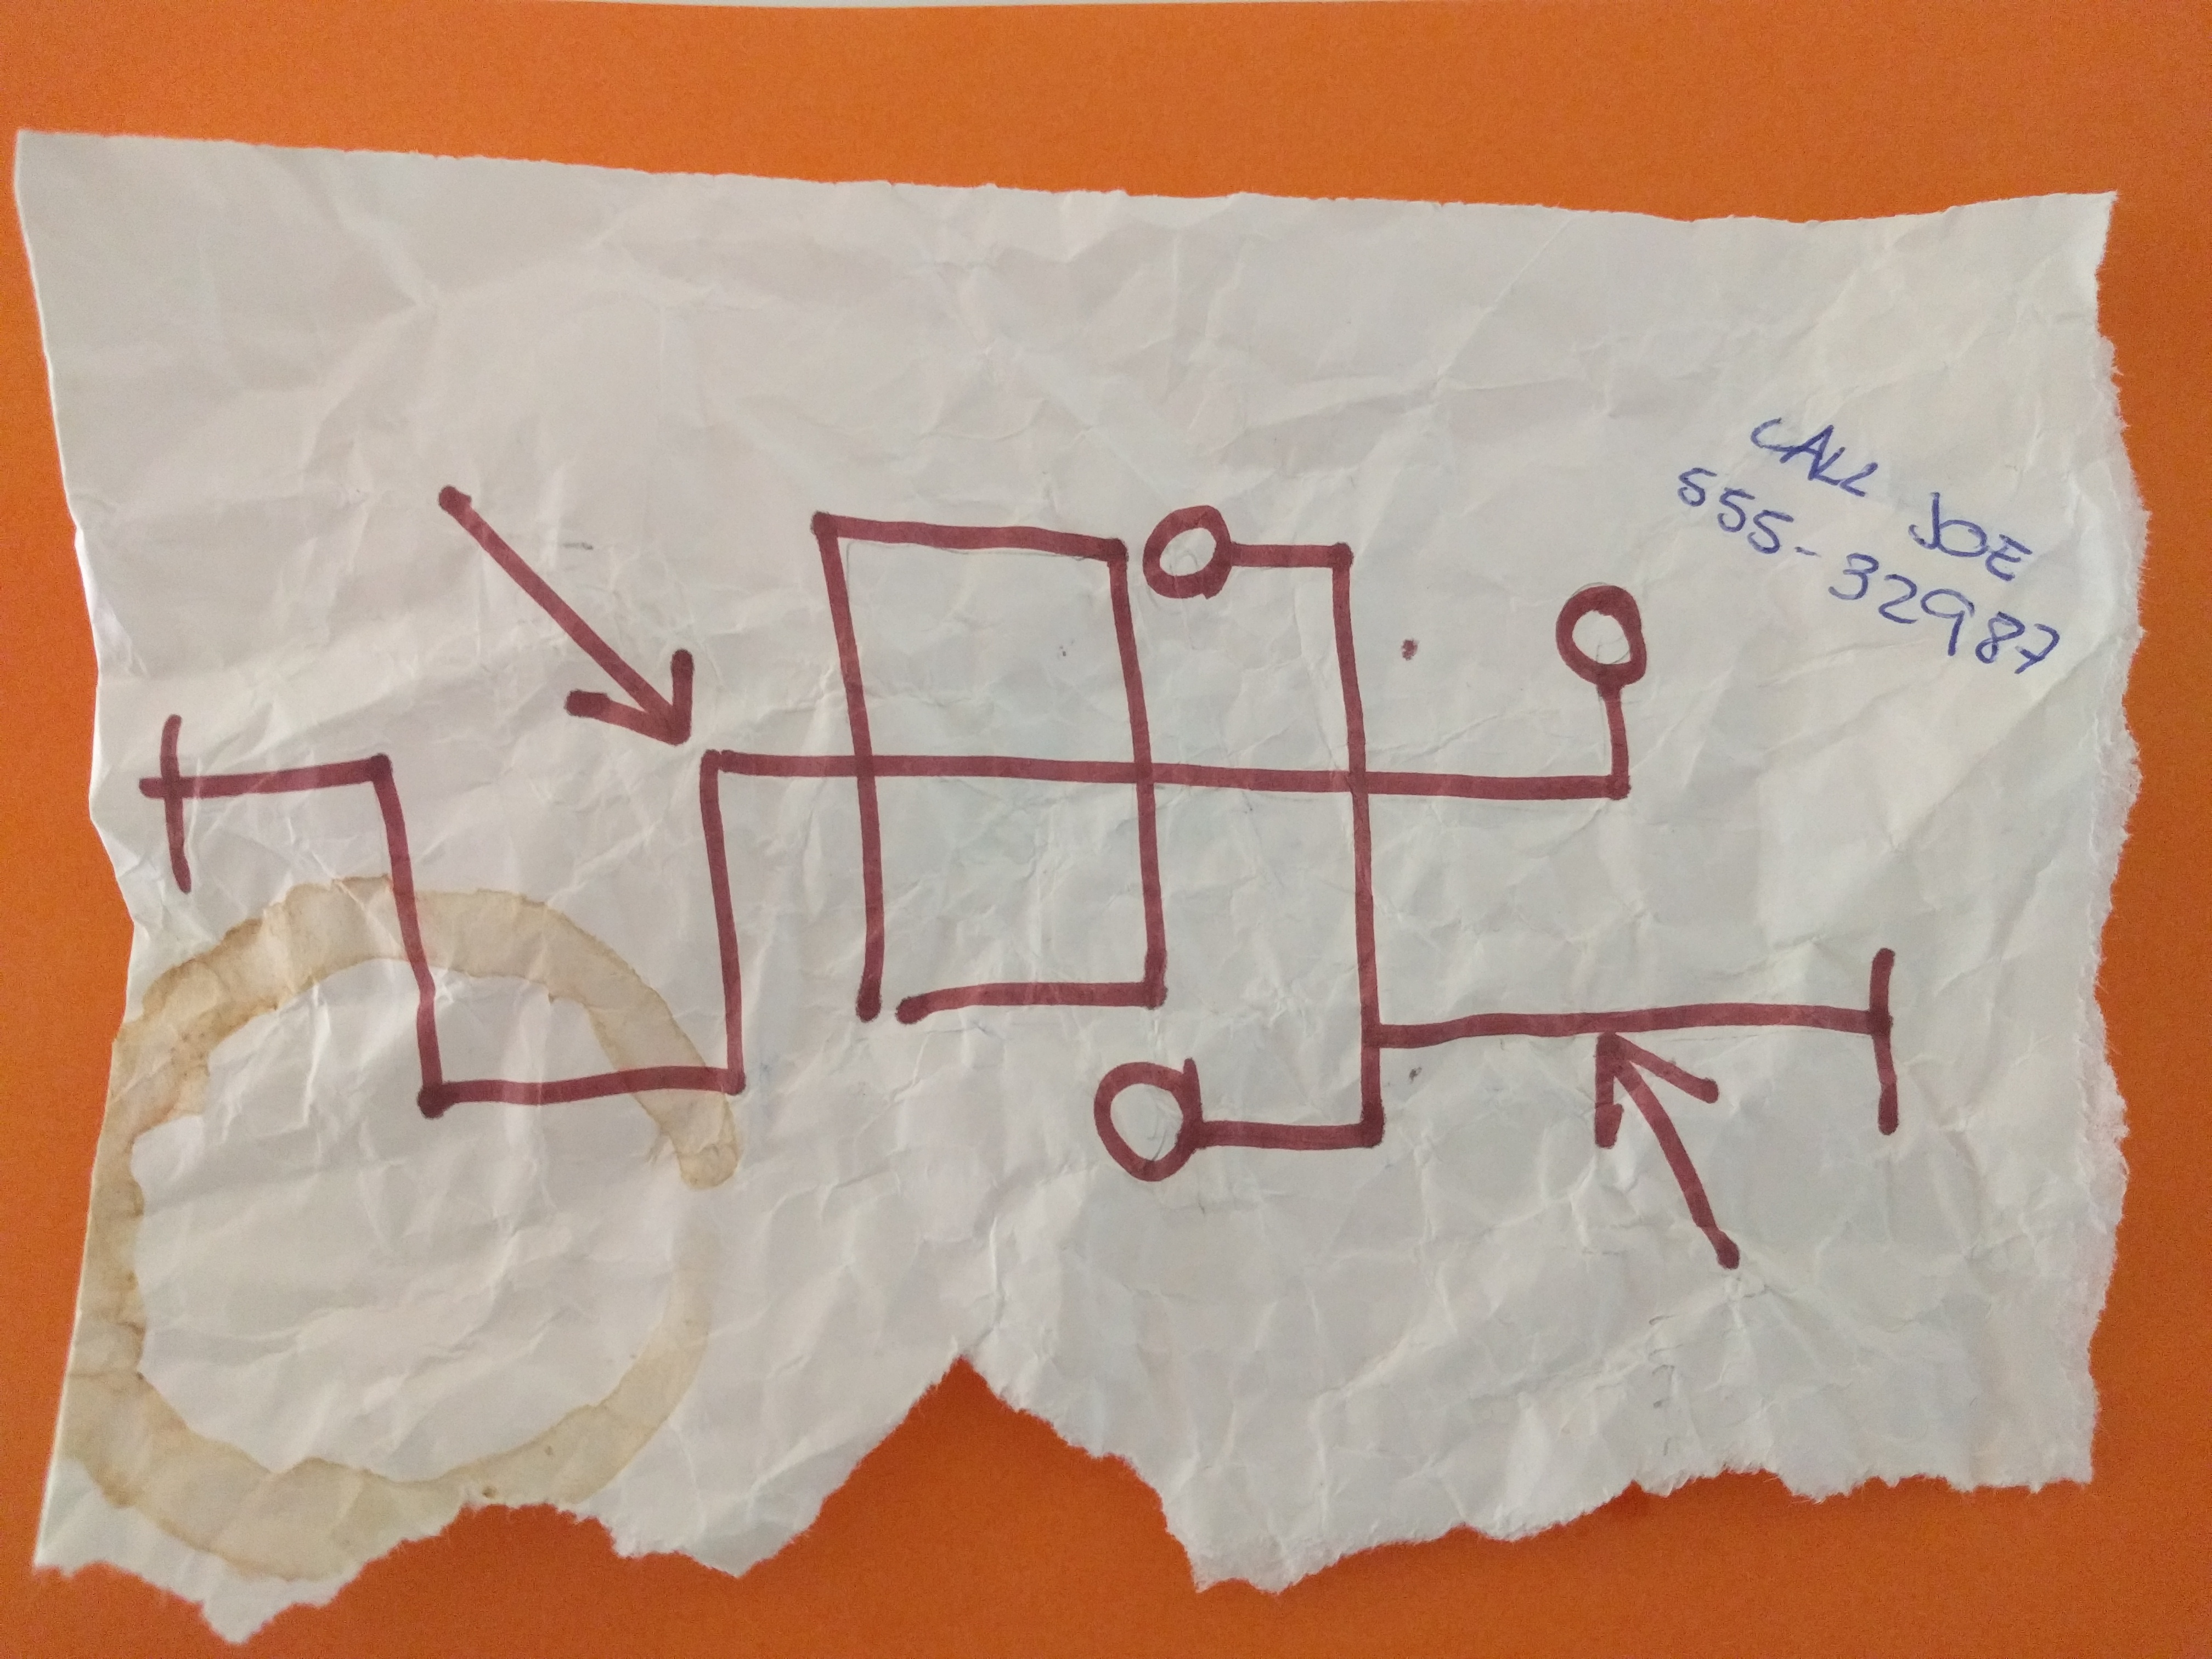 CALL JOE
555-32987